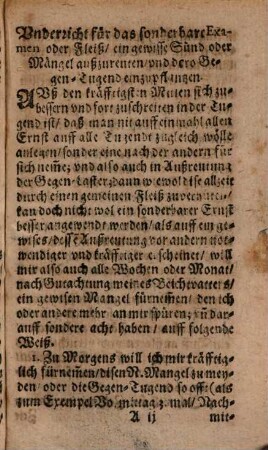 Vnderricht für das sonderbare Exa-
men oder Fleiß / ein gewisse Sünd oder
Mängel außzureuten / vnd dero Ge-
gen-Tugend einzupflantzen.
Auß den kräfftigsten Mitlen sich zu-
bessern vnd fortzuschreiten in der Tu-
gend ist / daß man nit auff ein mahl allen
Ernst auff alle Tugendt zugleich wölle
anlegen / sonder eine nach der andern für
sich neme; vnd also auch in Außreutung
der Gegen-Laster: dann wiewol dise allzeit
durch einen gemeinen Fleiß zu
kan doch nicht wol ein sonderbarer Ernst
besser angewendt werden / als auff ein ge-
wises / desse Außreutung vor andern not-
wendiger vnd kräfftiger erscheinet / will
mir also auch alle Wochen oder Monat /
nach Gutachtung meines Beichtvatters /
ein gewisen Mangel fürnemen / den ich
oder andere mehr an mir spüren; vnd dar-
auff sondere acht haben / auff folgende
Weiß.
1. Zu Morgens will ich mir kräfftig-
lich fürnemen / disen N. Mangel zu mey-
den / oder die Gegen-Tugend so offt (als
zum Exempel Vormittag 3. mal / Nach-
A ij mit-